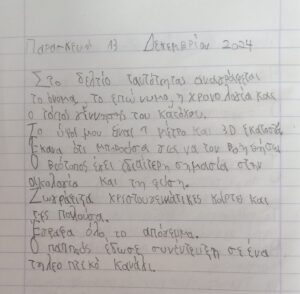 Παρασκευή 13 Δεκεμβρίου 2024
Στο δελτίο ταυτότητας αναγράφεται
το όνομα, το επώνυμο, η χρονολογία και
ο τόπος γέννησης του κατόχου.
Το ύψος μου είναι 1 μέτρο και 30 εκατοστά.
Έκανα ότι μπορούσα για να τον βοηθήσω
Ο βιότοπος έχει ιδιαίτερη σημασία στην
οικολογία και τη φύση.
Ζωγράφιζα χριστουγεννιάτικες κάρτες και
τις πουλούσα.
Έγραφα όλο το απόγευμα.
Ο παππούς έδωσε συνέντευξη σε ένα
τηλεοπτικό κανάλι.